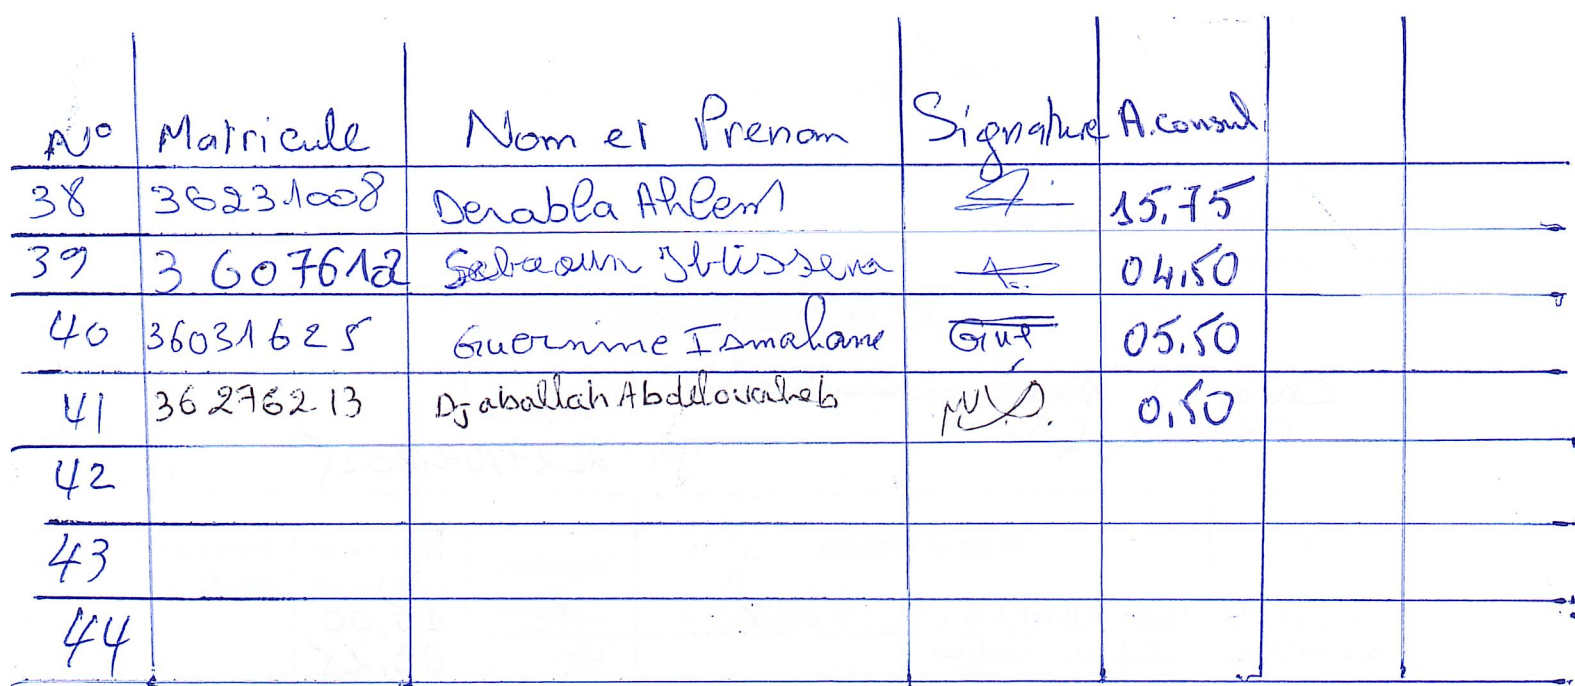 N° Matricule Nom et Prenom Signature A.consul.
38 36231008 Derabla Ahlem 15,75
39 3607612 Sebaoun Ibtissem 04,50
40 36031625 Guernine Ismahane 05,50
41 36276213 Djaballah Abdelouaheb 0,50
42
43
44